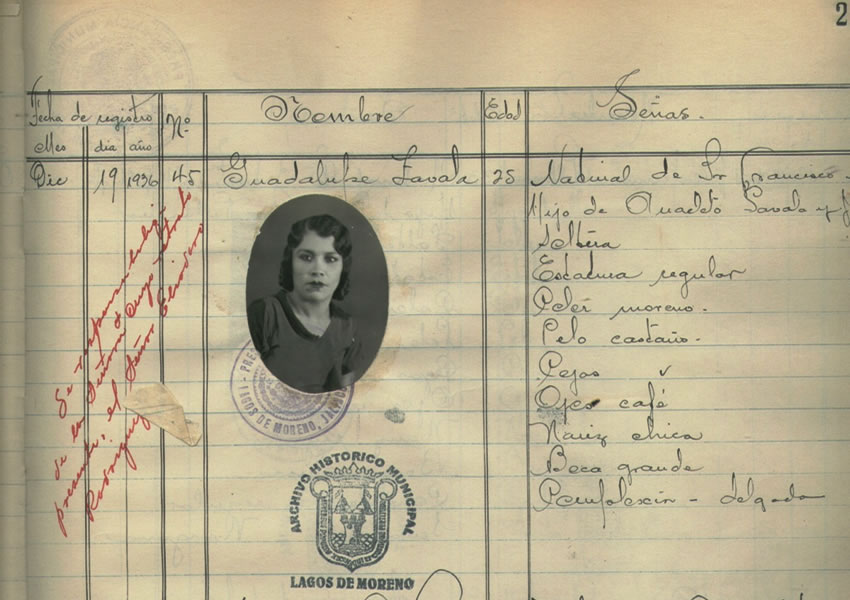 2
Fecha de registro
Mes día año
Nº
Nombre
Edad
Señas.
Dic 19 1936 45 Guadalupe Zavala 25
Natural de Sn Francisco
Hija de Zavala y
Soltera
Estatura regular
Color moreno.
Pelo castaño.
Cejas
Ojos café
Nariz chica
Boca grande
Complexión - delgada
Se responsabiliza
de la Señora cuyo retrato
presente: el Señor
Rodríguez
LAGOS DE MORENO, JAL.
ARCHIVO HISTORICO MUNICIPAL
LAGOS DE MORENO